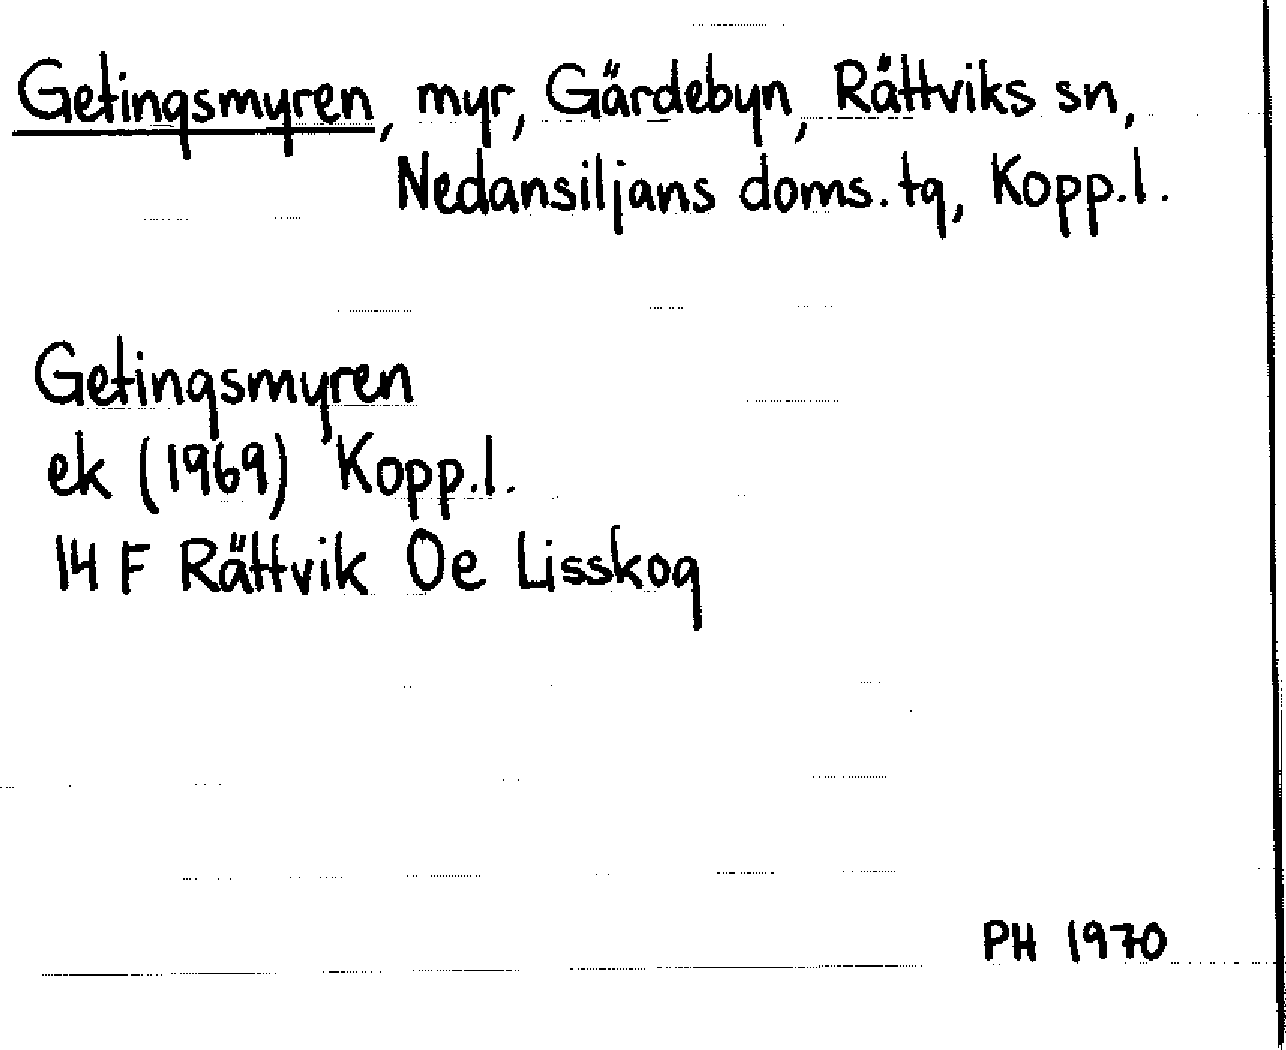 Getingsmyren, myr, Gärdebyn, Rättviks sn,
Nedansiljans doms. tg, Kopp.l.
Getingsmyren
ek (1969) Kopp.l.
14 F Rättvik 0e Lisskog
PH 1970